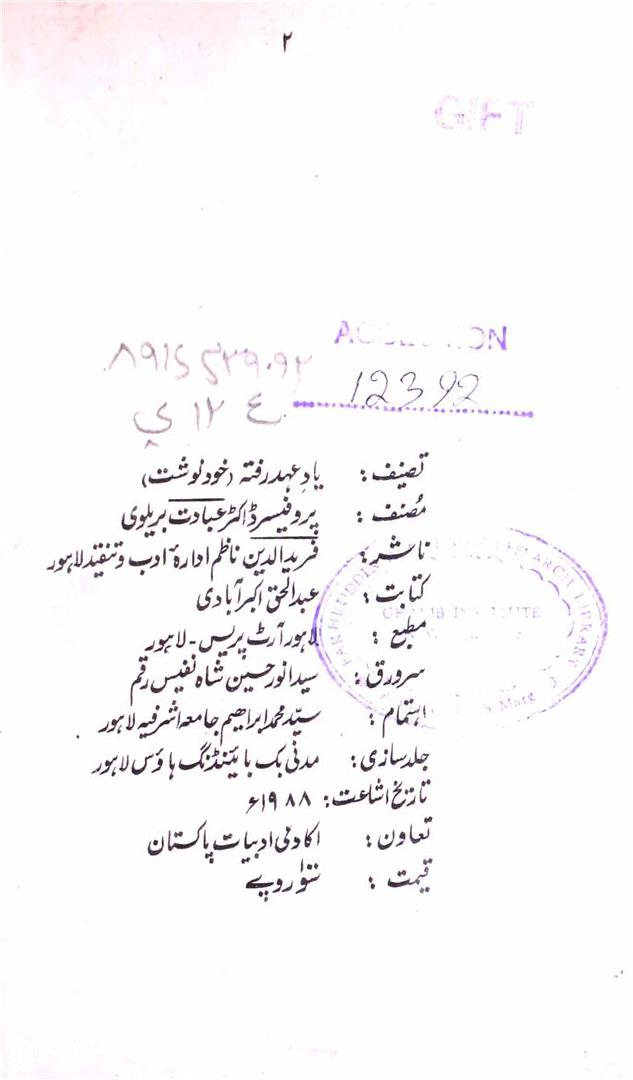 ۲
GIFT
ACCESSION
12392
تصنیف : یادِ عہدِ رفتہ (خود نوشت)
مُصنف : پروفیسر ڈاکٹر عبادت بریلوی
ناشر : فرید الدین ناظم ادارۂ ادب و تنقید لاہور
کتابت : عبدالحق اکبر آبادی
مطبع : لاہور آرٹ پریس - لاہور
سرورق : سید انور حسین شاہ نفیس رقم
اہتمام : سیّد محمد ابراھیم جامعہ اشرفیہ لاہور
جلد سازی : مدنی بک بائینڈنگ ہاؤس لاہور
تاریخ اشاعت : ۱۹۸۸ء
تعاون : اکادمی ادبیات پاکستان
قیمت : سَو روپے
FAKHRUDDIN RESEARCH LIBRARY
GHALIB INSTITUTE
Marg